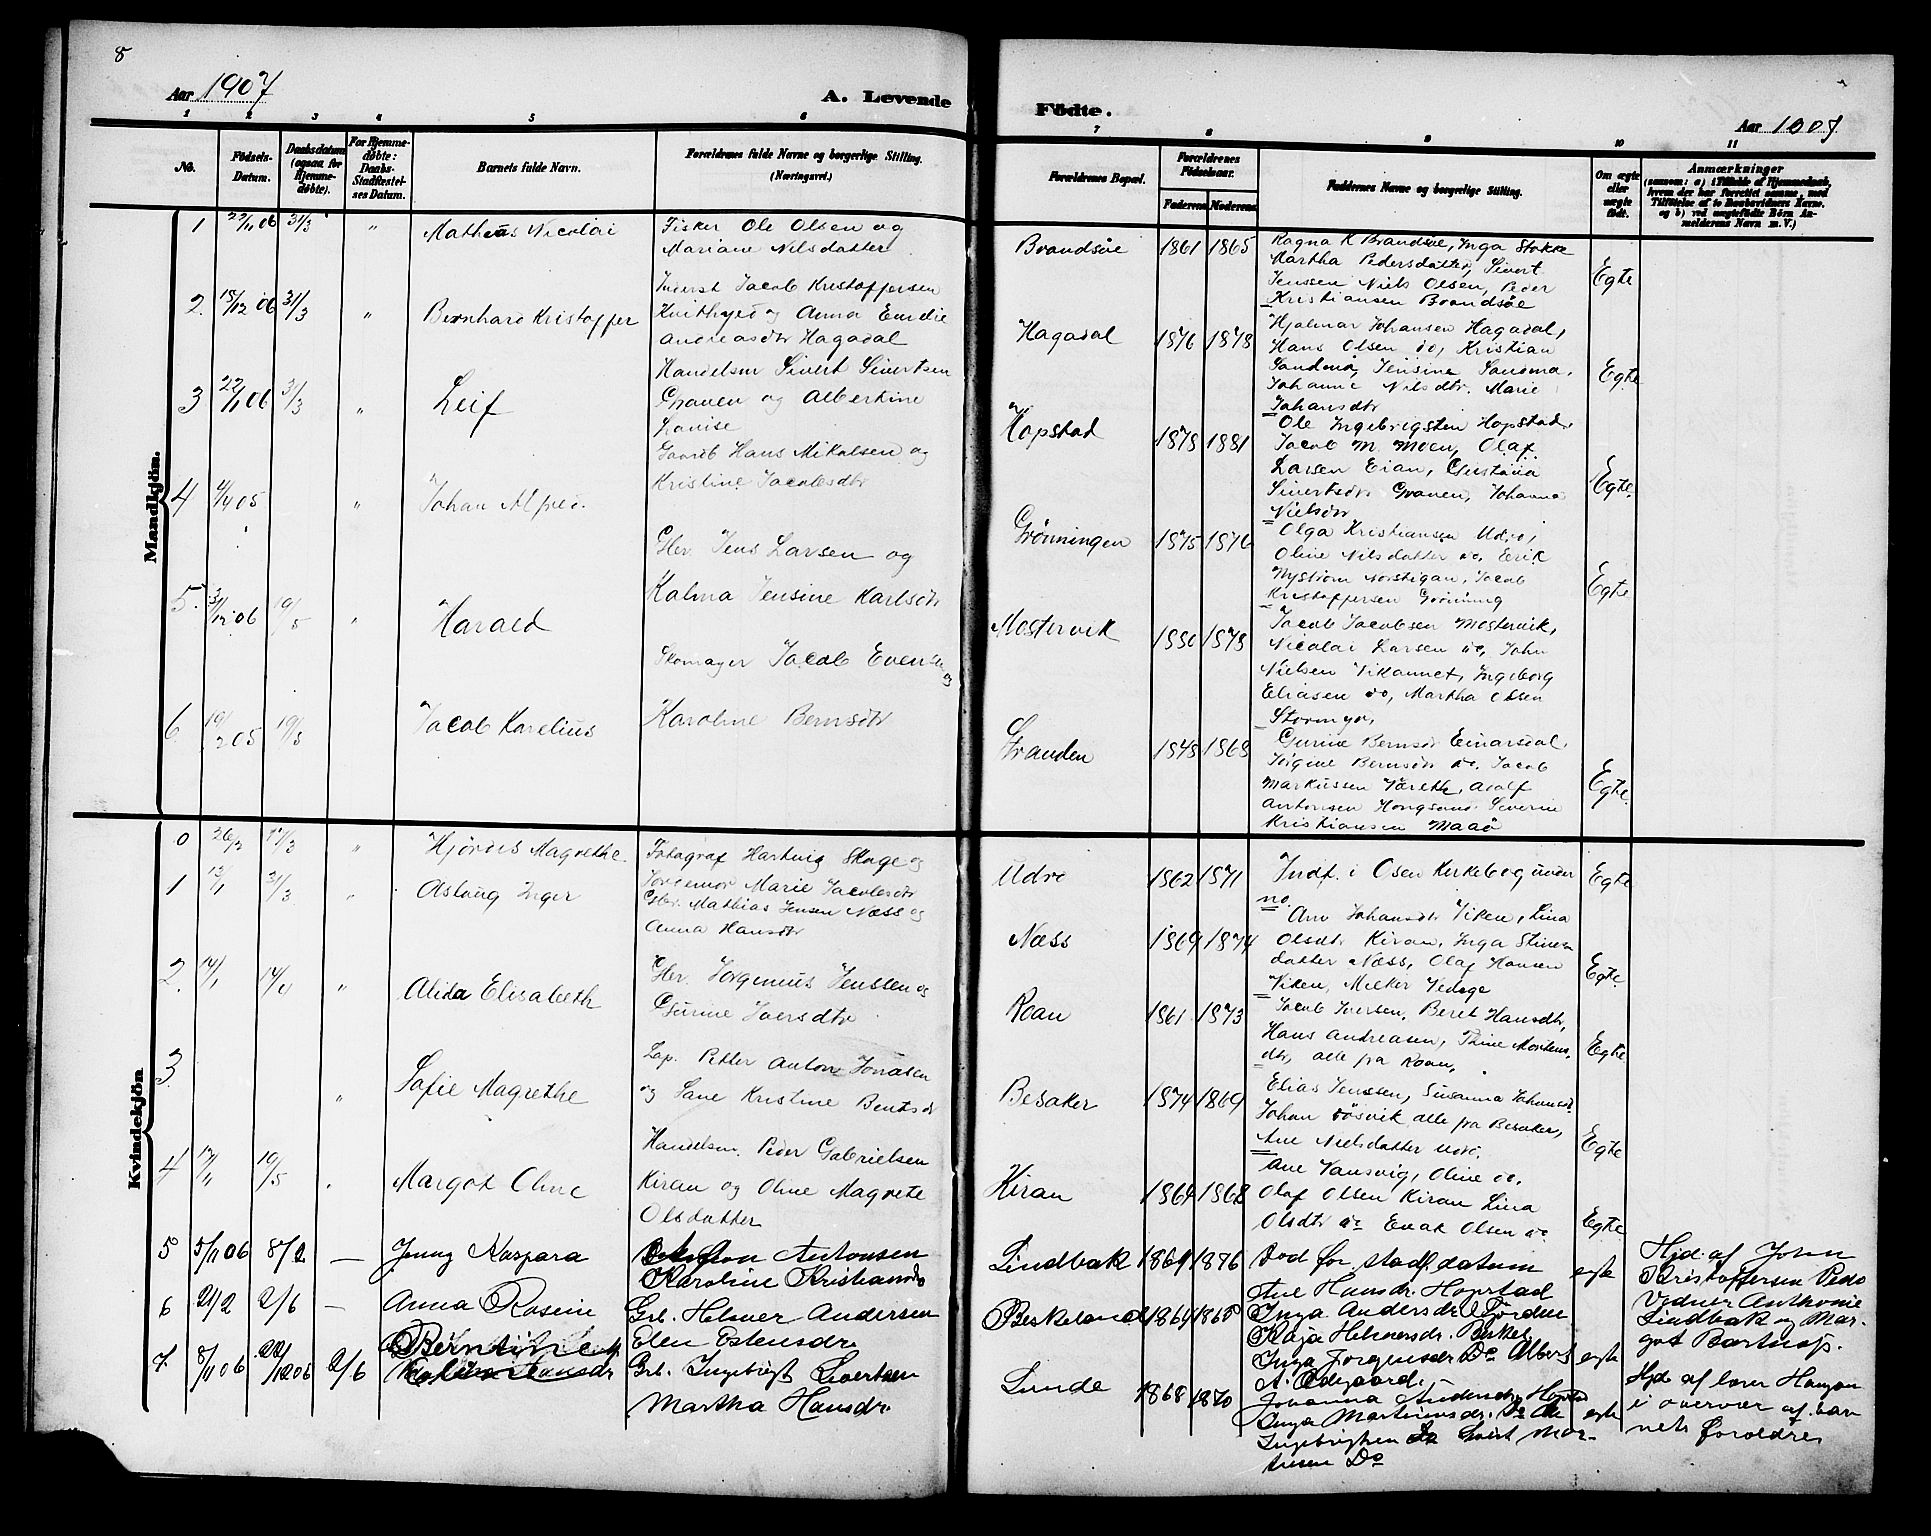 8
Aar 1907
A. Levende
Födte.
Aar 1907
1 2 3 4 5 6 7 8 9 10 11
No.
Fødsels-
Datum.
Daabsdatum
(ogsaa for
Hjemme-
døbte).
For Hjemme-
døbte:
Daabs-
Stadfæstel-
ses Datum.
Barnets fulde Navn.
Forældrenes fulde Navne og borgerlige Stilling.
(Næringsvei.)
Forældrenes Bopæl.
Forældrenes
Fødselsaar.
Faderens Moderens
Faddernes Navne og borgerlige Stilling.
Om ægte
eller
uægte
født.
Anmærkninger
Mandkjön.
1 31/3 " Mathæus Nicolai
Fisker Ole Olsen og
Mariane Nilsdatter
Brandsøe 1861 1865
Ragna K Brandsøe, Inga Stokke
Martha Pedersdatter, Sivert
Jenssen Niels Olsen, Peder
Kristiansen Brandsøe
Egte
2. 15/12 06 31/3 " Bernhard Kristoffer
Inderst Jacob Kristoffersen
Kvithyld og Anna Emelie
Andreasdtr Hagadal
Hagadal 1876 1878
Hjalmar Johansen Hagadal,
Hans Olsen do, Kristian
Sandmo, Jensine Sandmo.
Johanne Nilsdtr. Marie
Johansdtr
Egte
3 22/11 06 31/3 " Leif
Handelsm Sivert Sivertsen
Graven og Albertine
Lovise
Hopstad 1878 1881
Ole Ingebrigtsen Hopstad,
Jacob M. Moen, Olaf
Larsen Eian, Gustava
Sivertsdtr Graven, Johanna
Nielsdtr
Egte.
4 4/4 05 " Johan Alfred.
Gaardb Hans Mikalsen og
Kristine Jacobsdtr
Grönningen 1875 1876
Olga Kristiansen Udro,
Oline Nilsdatter do, Erik
Nyström Norstigan, Jacob
Kristoffersen Gröning
Egte
5. 31/12 06 19/5 " Harald
Gbr. Jens Larsen og
Kalma Jensine Karlsdtr
Mostervik 1880 1878
Jacob Jacobsen Mostervik,
Nicolai Larsen do, John
Nielsen Vikannet, Ingeborg
Eliasen do, Martha Olsen
Stormyr,
6 19/5 Jacob Karelius
Skomager Jacob Evensen
og
Karoline Berntsdtr
Stranden 1848 1868
Gurine Berntsdtr Einarsdal,
Jörgine Berntsdtr do. Jacob
Markussen Været, Adolf
Antonsen Hongsand Severine
Kristiansen Maaö
Egte.
Kvindekjön
0 17/3 " Hjördis Magrethe.
Fotograf Hartvig Skage og
Jordemor Marie Jacobsdtr
Udro 1862 1871
Indf. i Osen Kirkebog under
no.
Egte
1 13/1 31/3 " Aslaug Inger
Gbr. Mathias Jensen Næss og
Anna Hansdtr
Næss 1869 1874
Ane Johansdtr Viken, Lina
Olsdtr Kiran, Inga Stinesdatter Næss, Olaf Hansen
Viken, Melker Vedøge
Egte.
2. 14/4 " Alida Elisabeth
Gbr. Jørginus Jenssen og
Gurine Iversdtr
Roan 1861 1873
Jacob Iversen, Beret Hansdtr,
Hans Andreasen, Thine Mortensdtr, alle fra Roan,
Egte
3. " Sofie Magrethe
Lap. Petter Anton Jonasen
og Lane Kristine Bentsdtr
Besaker 1874 1869
Elias Jenssen, Susanna Johansdtr.
Johan Tøsvik alle fra Besaker,
Ane Nielsdatter Udro.
Egte
4 17/1 19/5 Margot Oline
Handelsm. Peder Gabrielsen
Kiran og Oline Magrete
Olsdatter
Kiran 1864 1868
Ane Vansvig, Oline do.
Olaf Olsen Kiran Lina
Olsdtr do Enok Olsen do.
Egte
5 5/11 06 8/2 — Jenny Kaspara
Anton Antonsen
Karoline Kristiansdr
Lindbak 1869 1876
Død før stadf. datum
egte
Hjd. af John
Kristoffersen Peder
Vidner Anthonie
Lindbak og Margot Bartnop.
6 21/2 2/6 — Anna Rosine
Grb. Helmer Andersen
Elen Estensdr.
Beskeland 1864 1868
Ane Hansdr. Hopstad
Inga Andersdr. Fjorden
Kaja Helmersdr. Beskel.
Inga Jørgensdr Do Albert
A. Ødegaard.
egte
7. 8/11 06 2/6 Berntine
Grb. Ingebrigt Sivertsen
Martha Hansdr.
Lunde 1868 1870
Johanna Andersdr. Hopstad
Inga Martinusdr. Do Ole
Ingebrigtsen Do Sivert Martinsen Do
egte
Hjd af lærer Hangan
i overvær af barnets forældre